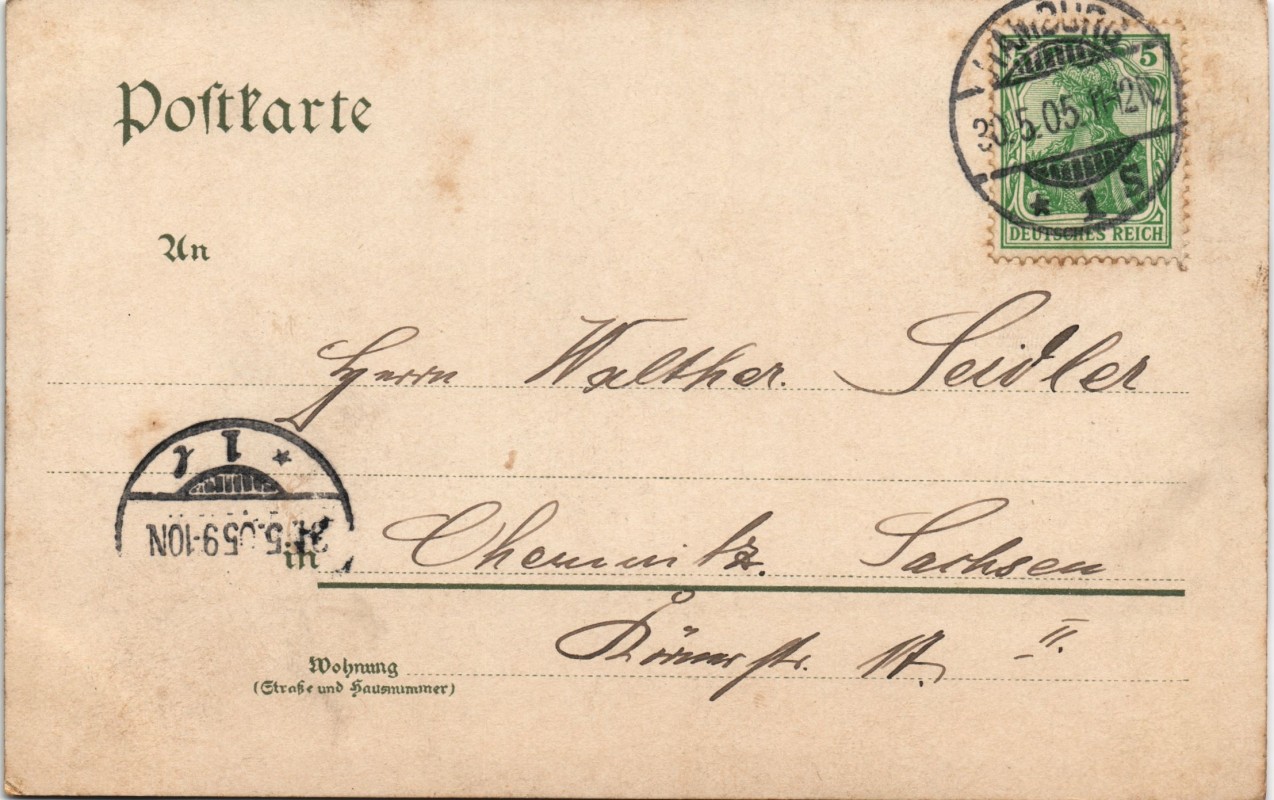 Postkarte
HAMBURG
30.5.05. 11-12N
* 1 S
5
DEUTSCHES REICH
An
Herrn Walther Seidler
* 1
5.05 9-10N
in Chemnitz. Sachsen
Körnerstr. 17. II.
Wohnung
(Straße und Hausnummer)